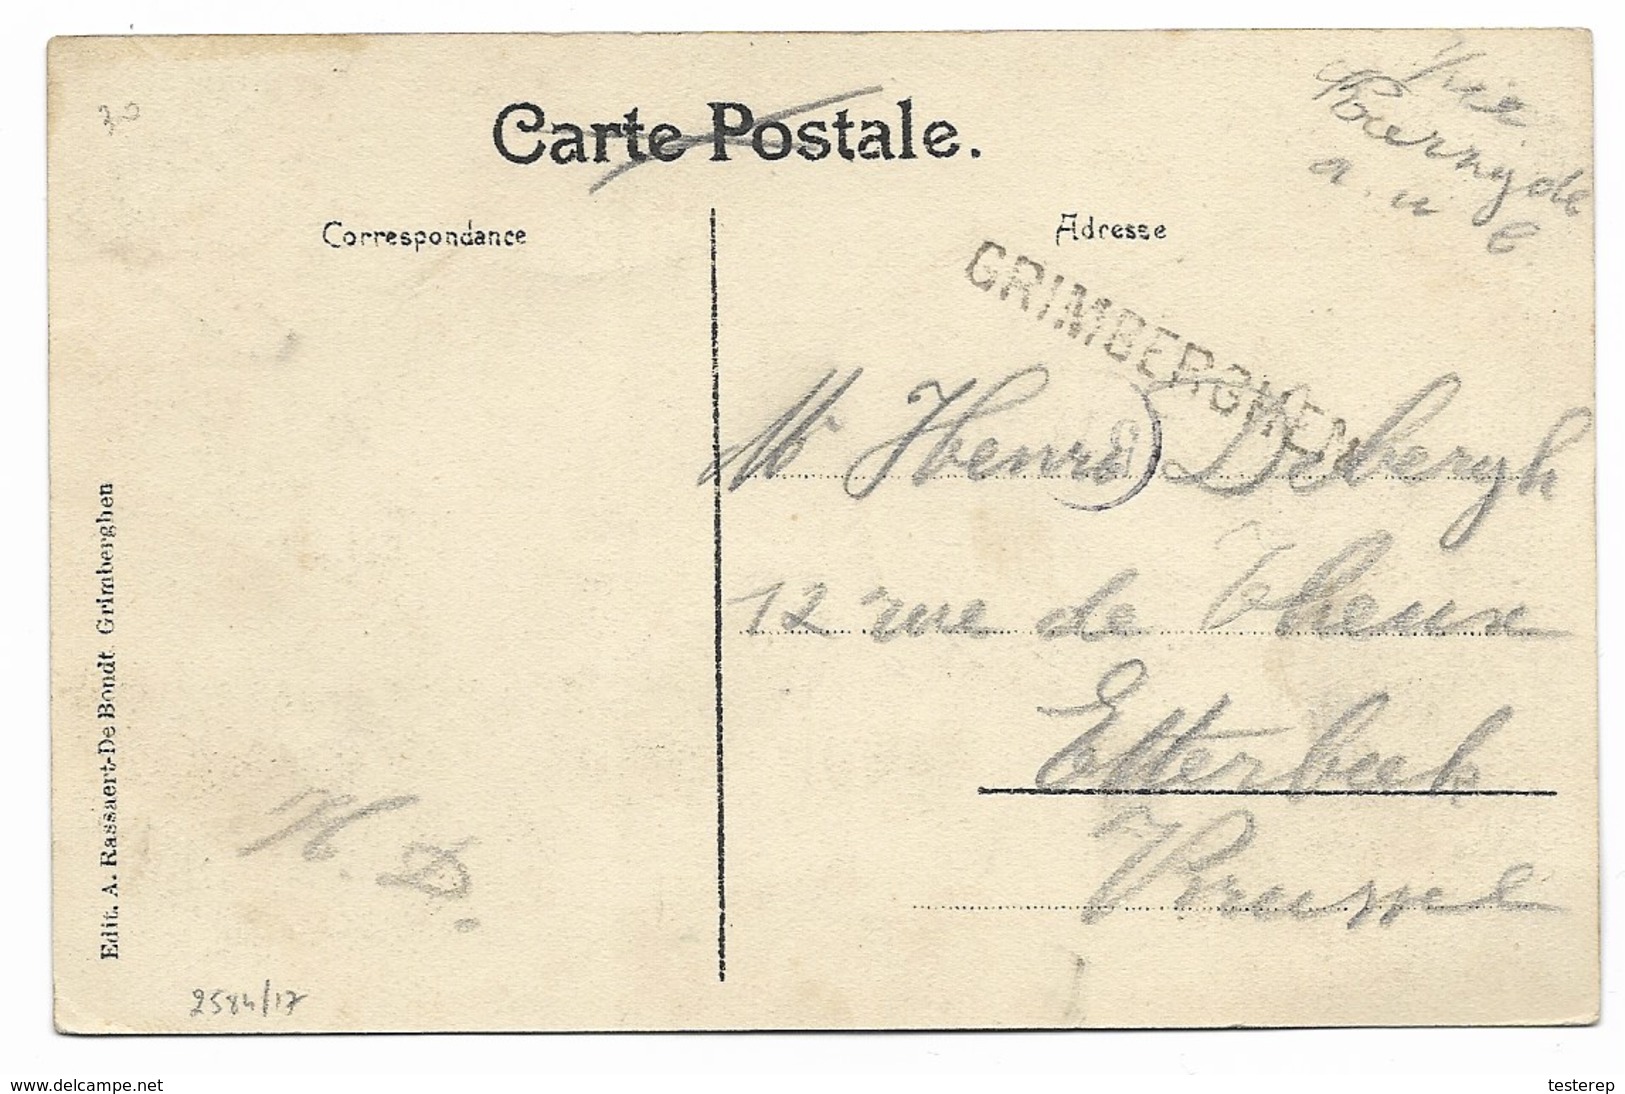 30
Carte Postale.
Correspondance
Adresse
GRIMBERGHEN
Mr Henri Debergh
12 rue de Theux
Etterbeek
H. D.
Edit. A. Rassaert-De Bondt. Grimberghen
2584/17
www.delcampe.net
testerep